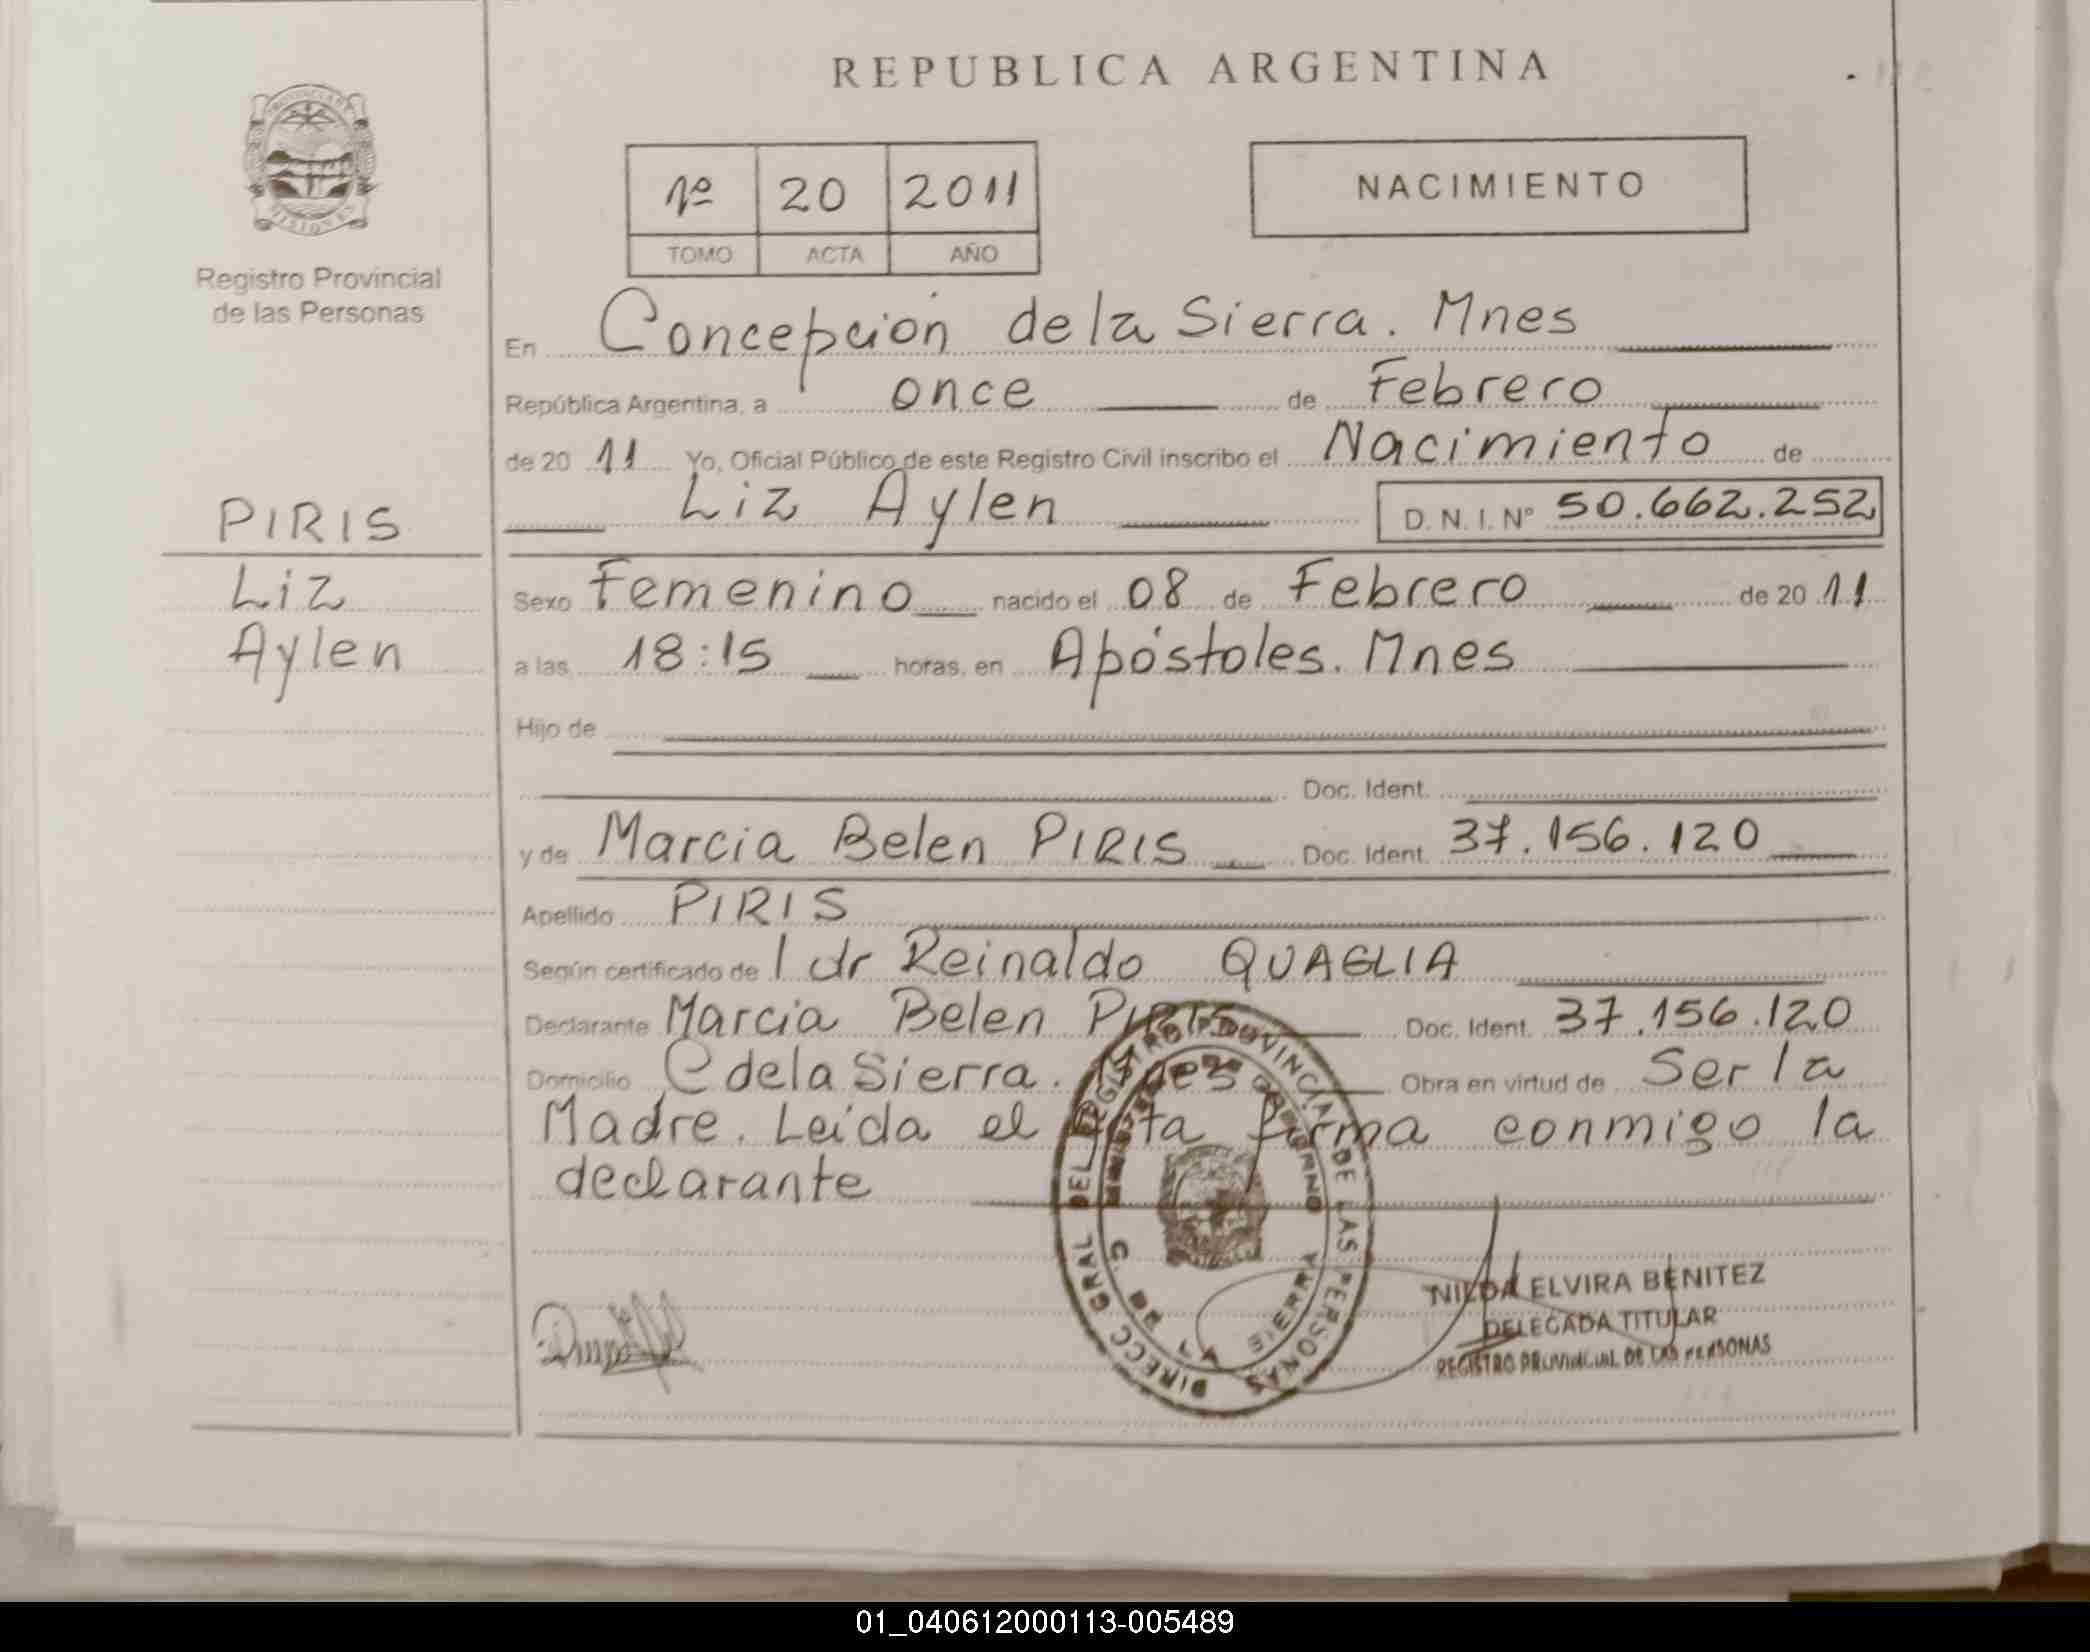 REPUBLICA ARGENTINA
1º 20 2011
TOMO ACTA AÑO
NACIMIENTO
Registro Provincial
de las Personas
PIRIS
Liz
Aylen
En Concepción de la Sierra. Mnes
República Argentina, a once de Febrero
de 20 11 Yo, Oficial Público de este Registro Civil inscribo el Nacimiento de
Liz Aylen D.N.I. Nº 50.662.252
Sexo Femenino nacido el 08 de Febrero de 20 11
a las 18:15 horas, en Apóstoles. Mnes
Hijo de
Doc. Ident.
y de Marcia Belen PIRIS Doc. Ident. 37.156.120
Apellido PIRIS
Según certificado de l dr Reinaldo QUAGLIA
Declarante Marcia Belen PIRIS Doc. Ident. 37.156.120
Domicilio C de la Sierra. Mnes Obra en virtud de Ser la
Madre. Leida el Acta firma conmigo la
declarante
DIRECC GRAL DEL REGISTRO PROVINCIAL DE LAS PERSONAS
MINISTERIO DE GOBIERNO
C. DE LA SIERRA
NILDA ELVIRA BENITEZ
DELEGADA TITULAR
REGISTRO PROVINCIAL DE LAS PERSONAS
01_040612000113-005489